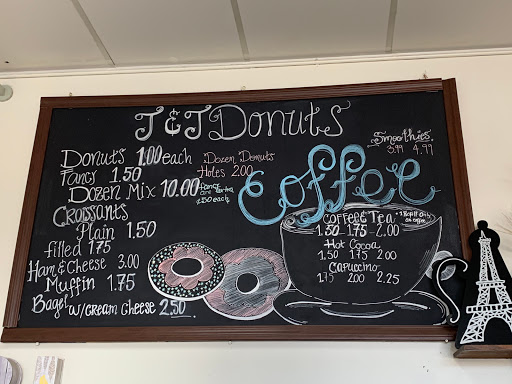 J & J Donuts
Donuts 1.00 each
Fancy 1.50
Dozen Mix 10.00
Dozen Donuts
Holes 2.00
Croissants
Plain 1.50
filled 1.75
Ham & Cheese 3.00
Muffin 1.75
Bagel w/cream cheese 2.50
Smoothies
3.99 4.99
Coffee
Coffee & Tea
1.50 1.75 2.00
Hot Cocoa
1.50 1.75 2.00
Capuccino
1.75 2.00 2.25